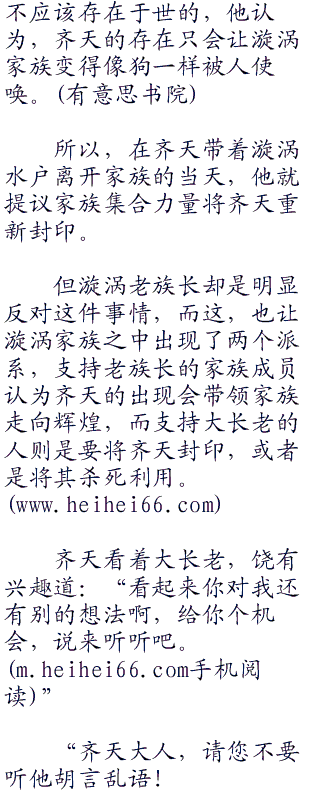 不应该存在于世的，他认
为，齐天的存在只会让漩涡
家族变得像狗一样被人使
唤。(有意思书院)
所以，在齐天带着漩涡
水户离开家族的当天，他就
提议家族集合力量将齐天重
新封印。
但漩涡老族长却是明显
反对这件事情，而这，也让
漩涡家族之中出现了两个派
系，支持老族长的家族成员
认为齐天的出现会带领家族
走向辉煌，而支持大长老的
人则是要将齐天封印，或者
是将其杀死利用。
(www.heihei66.com)
齐天看着大长老，饶有
兴趣道：“看起来你对我还
有别的想法啊，给你个机
会，说来听听吧。
(m.heihei66.com手机阅
读)”
“齐天大人，请您不要
听他胡言乱语！